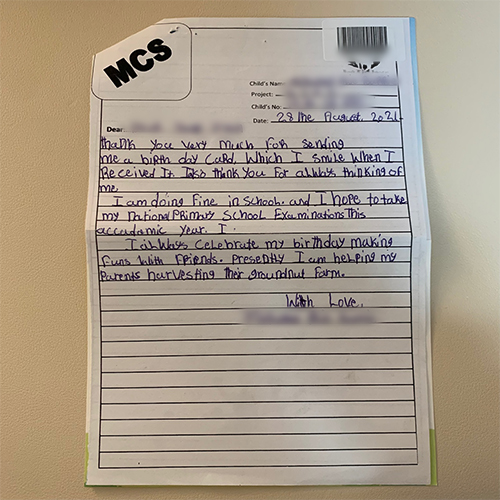 MCS
Child's Name
Project:
Child's No:
Date: 28the August, 2021
Dear:
thank you very Much For sending
me a birth day Card, Which I smile When I
Received It. I also think You For always thinking of
me.
I am doing Fine in school. and I hope to take
my National Primary School Examinations This
accademic year. I.
I always celebrate my birthday making
Funs With Friends. Presently I am helping my
Parents harvesting their groundnut Farm.
With Love,